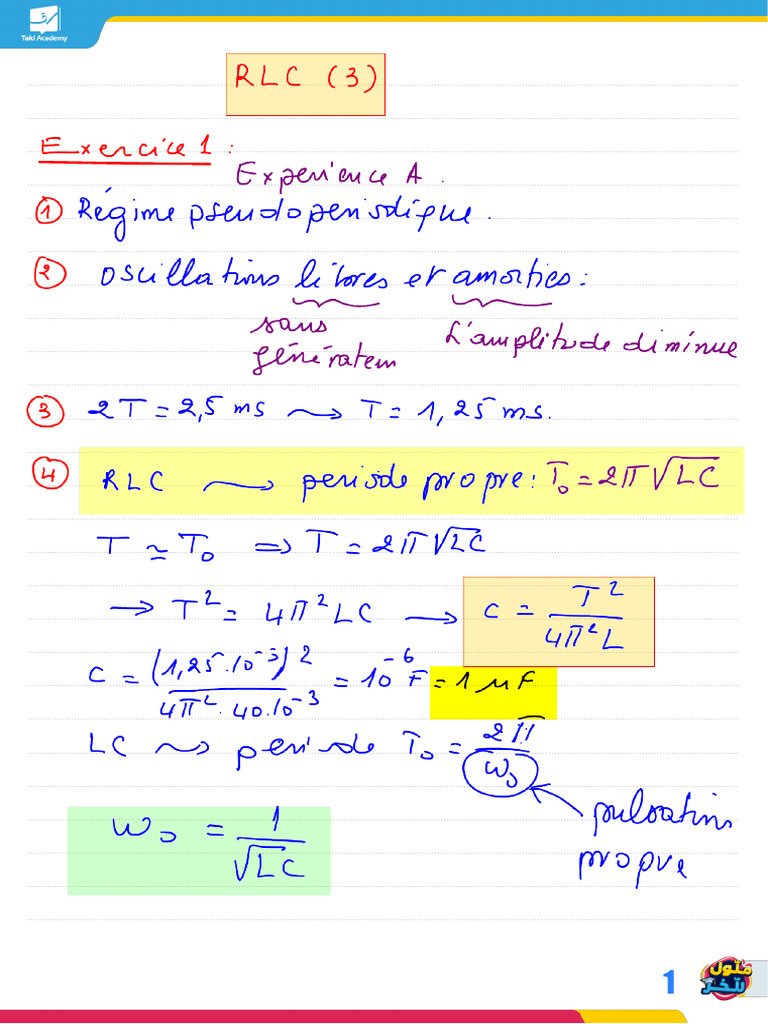 Taki Academy
RLC (3)
Exercice 1 :
Expérience A.
① Régime pseudopériodique.
② Oscillations libres et amorties :
sans générateur
L'amplitude diminue
③ 2T = 2,5 ms ⇝ T = 1,25 ms.
④ RLC ⇝ periode propre : T₀ = 2π√LC
T ≃ T₀ ⇒ T = 2π√LC
→ T² = 4π²LC → C = T²/4π²L
C = (1,25.10⁻³)²/4π².40.10⁻³ = 10⁻⁶ F = 1 µF
LC ⇝ periode T₀ = 2π/ω₀
pulsations propre
ω₀ = 1/√LC
1
متّول سّخر